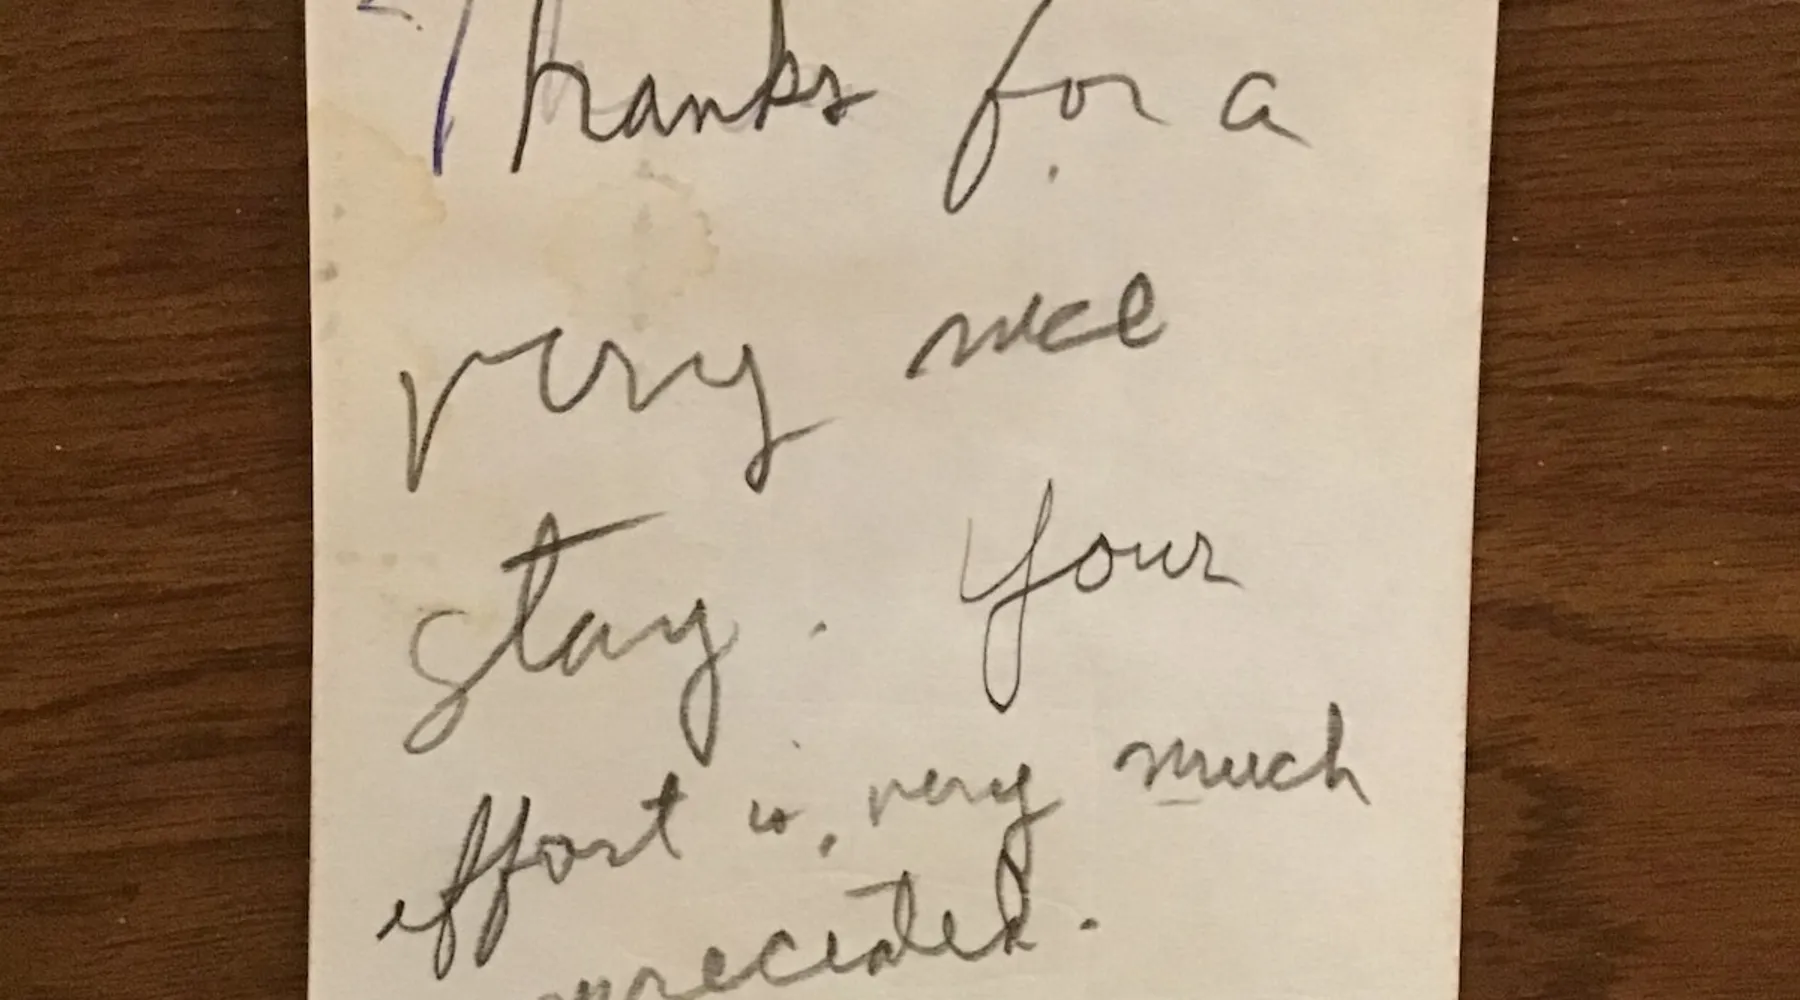 Thanks for a
very nice
stay. Your
effort is, very much
appreciated.